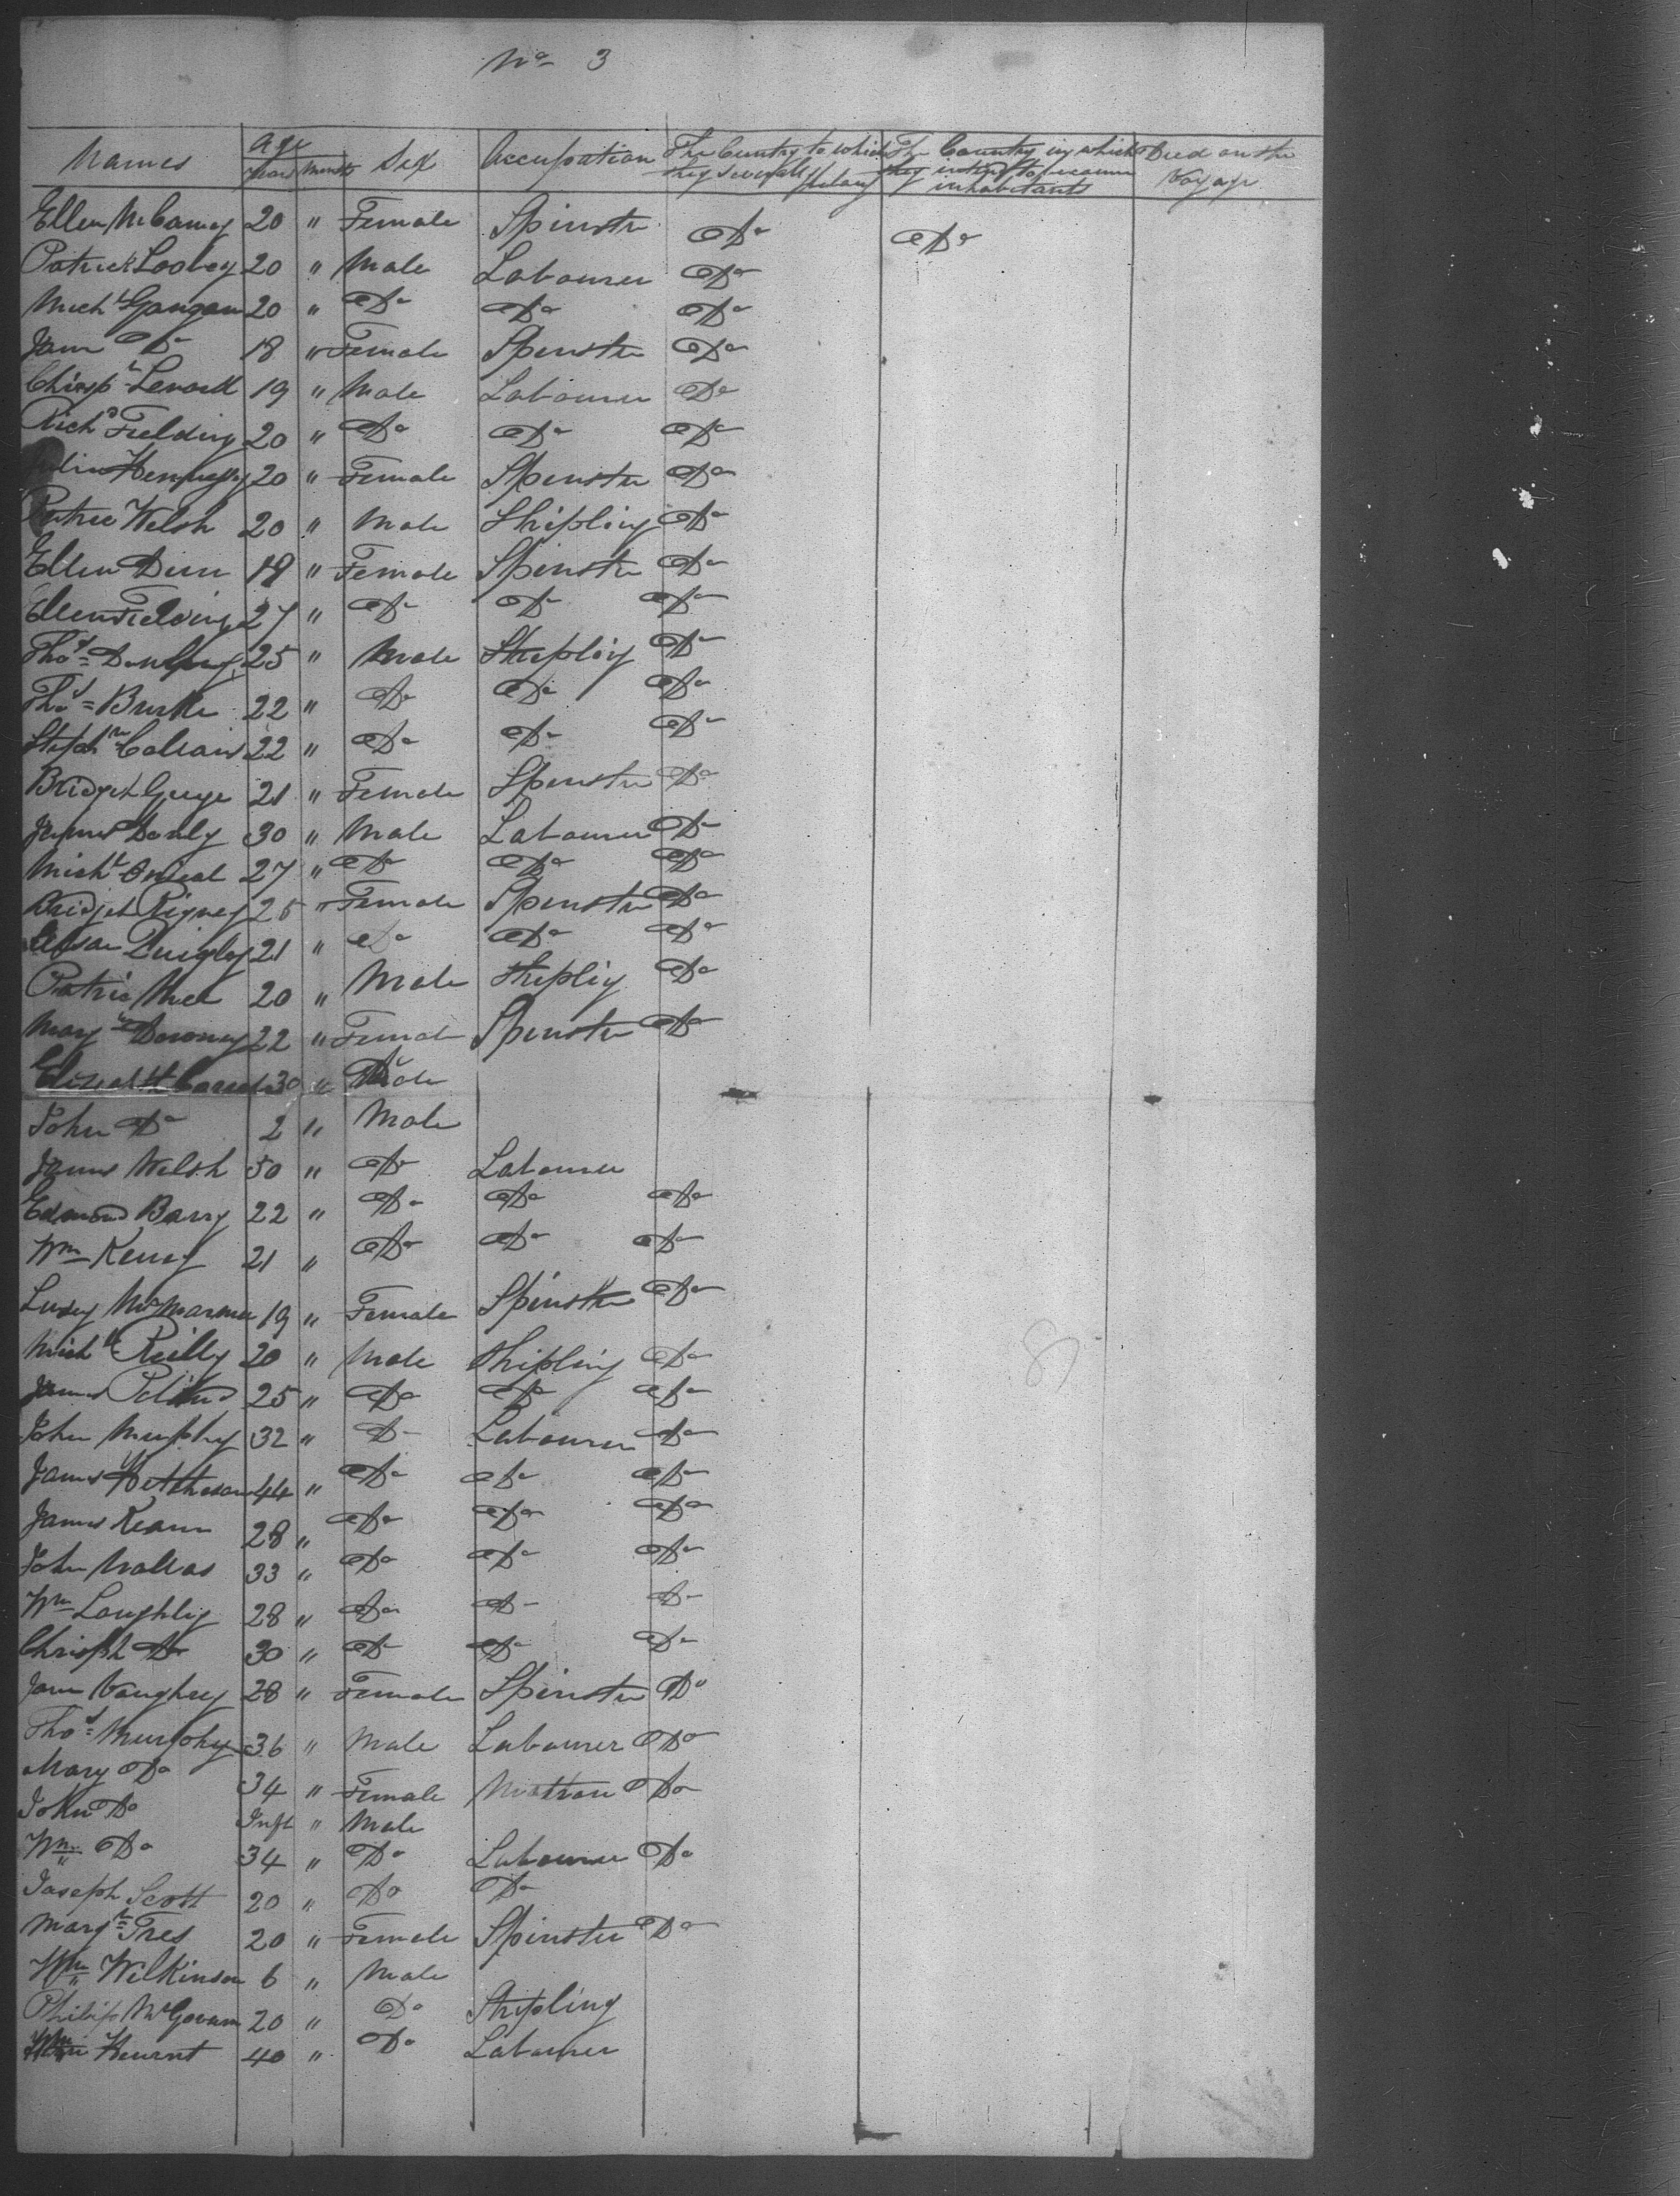 No 3
Names Age Years Months Sex Occupation The Country to which they severally belong The Country in which they intend to become inhabitants Died on the Voyage
Ellen 20 " Female Spinster Do Do
Patrick Loobey 20 " Male Labourer Do
Michl 20 " Do Do Do
Jane Do 18 " Female Spinster Do
19 " Male Labourer Do
Richd Fielding 20 " Do Do Do
20 " Female Spinster Do
Patric Welsh 20 " Male Shipling Do
Ellen 18 " Female Spinster Do
Ellen Fielding 27 " Do Do Do
Thos 25 " Male Shipling Do
Thos Burke 22 " Do Do Do
Stephn 22 " Do Do Do
Bridget 21 " Female Spinster Do
James 30 " Male Labourer Do
Michl Oneal 27 " Do Do Do
Bridget Rigney 25 " Female Spinster Do
Quigley 21 " Do Do Do
Patric 20 " Male Shiplig Do
Mary Downey 22 " Female Spinster Do
Elizabeth 30 "
John Do 2 " Male
James Welsh 50 " Do Labourer
Edmond Barry 22 " Do Do Do
Wm 21 " Do Do Do
19 " Female Spinster Do
Michl Reilly 20 " Male Shipling Do
James 25 " Do Do Do
John Murphy 32 " Do Labourer Do
James 44 " Do Do Do
James Keann 28 " Do Do Do
John 33 " Do Do Do
Wm Loughlig 28 " Do Do Do
Christph Do 30 " Do Do Do
Jane Vaughey 28 " Female Spinster Do
Thos Murphy 36 " Male Labourer Do
Mary Do 34 " Female Matron Do
John Do Inft " Male
Wm Do 34 " Do Labourer Do
Joseph Scott 20 " Do Do
Margt Fres 20 " Female Spinster Do
Wm Wilkinson 6 " Male
Philip McGovern 20 " Do Stripling
Hearnt 40 " Do Labourer